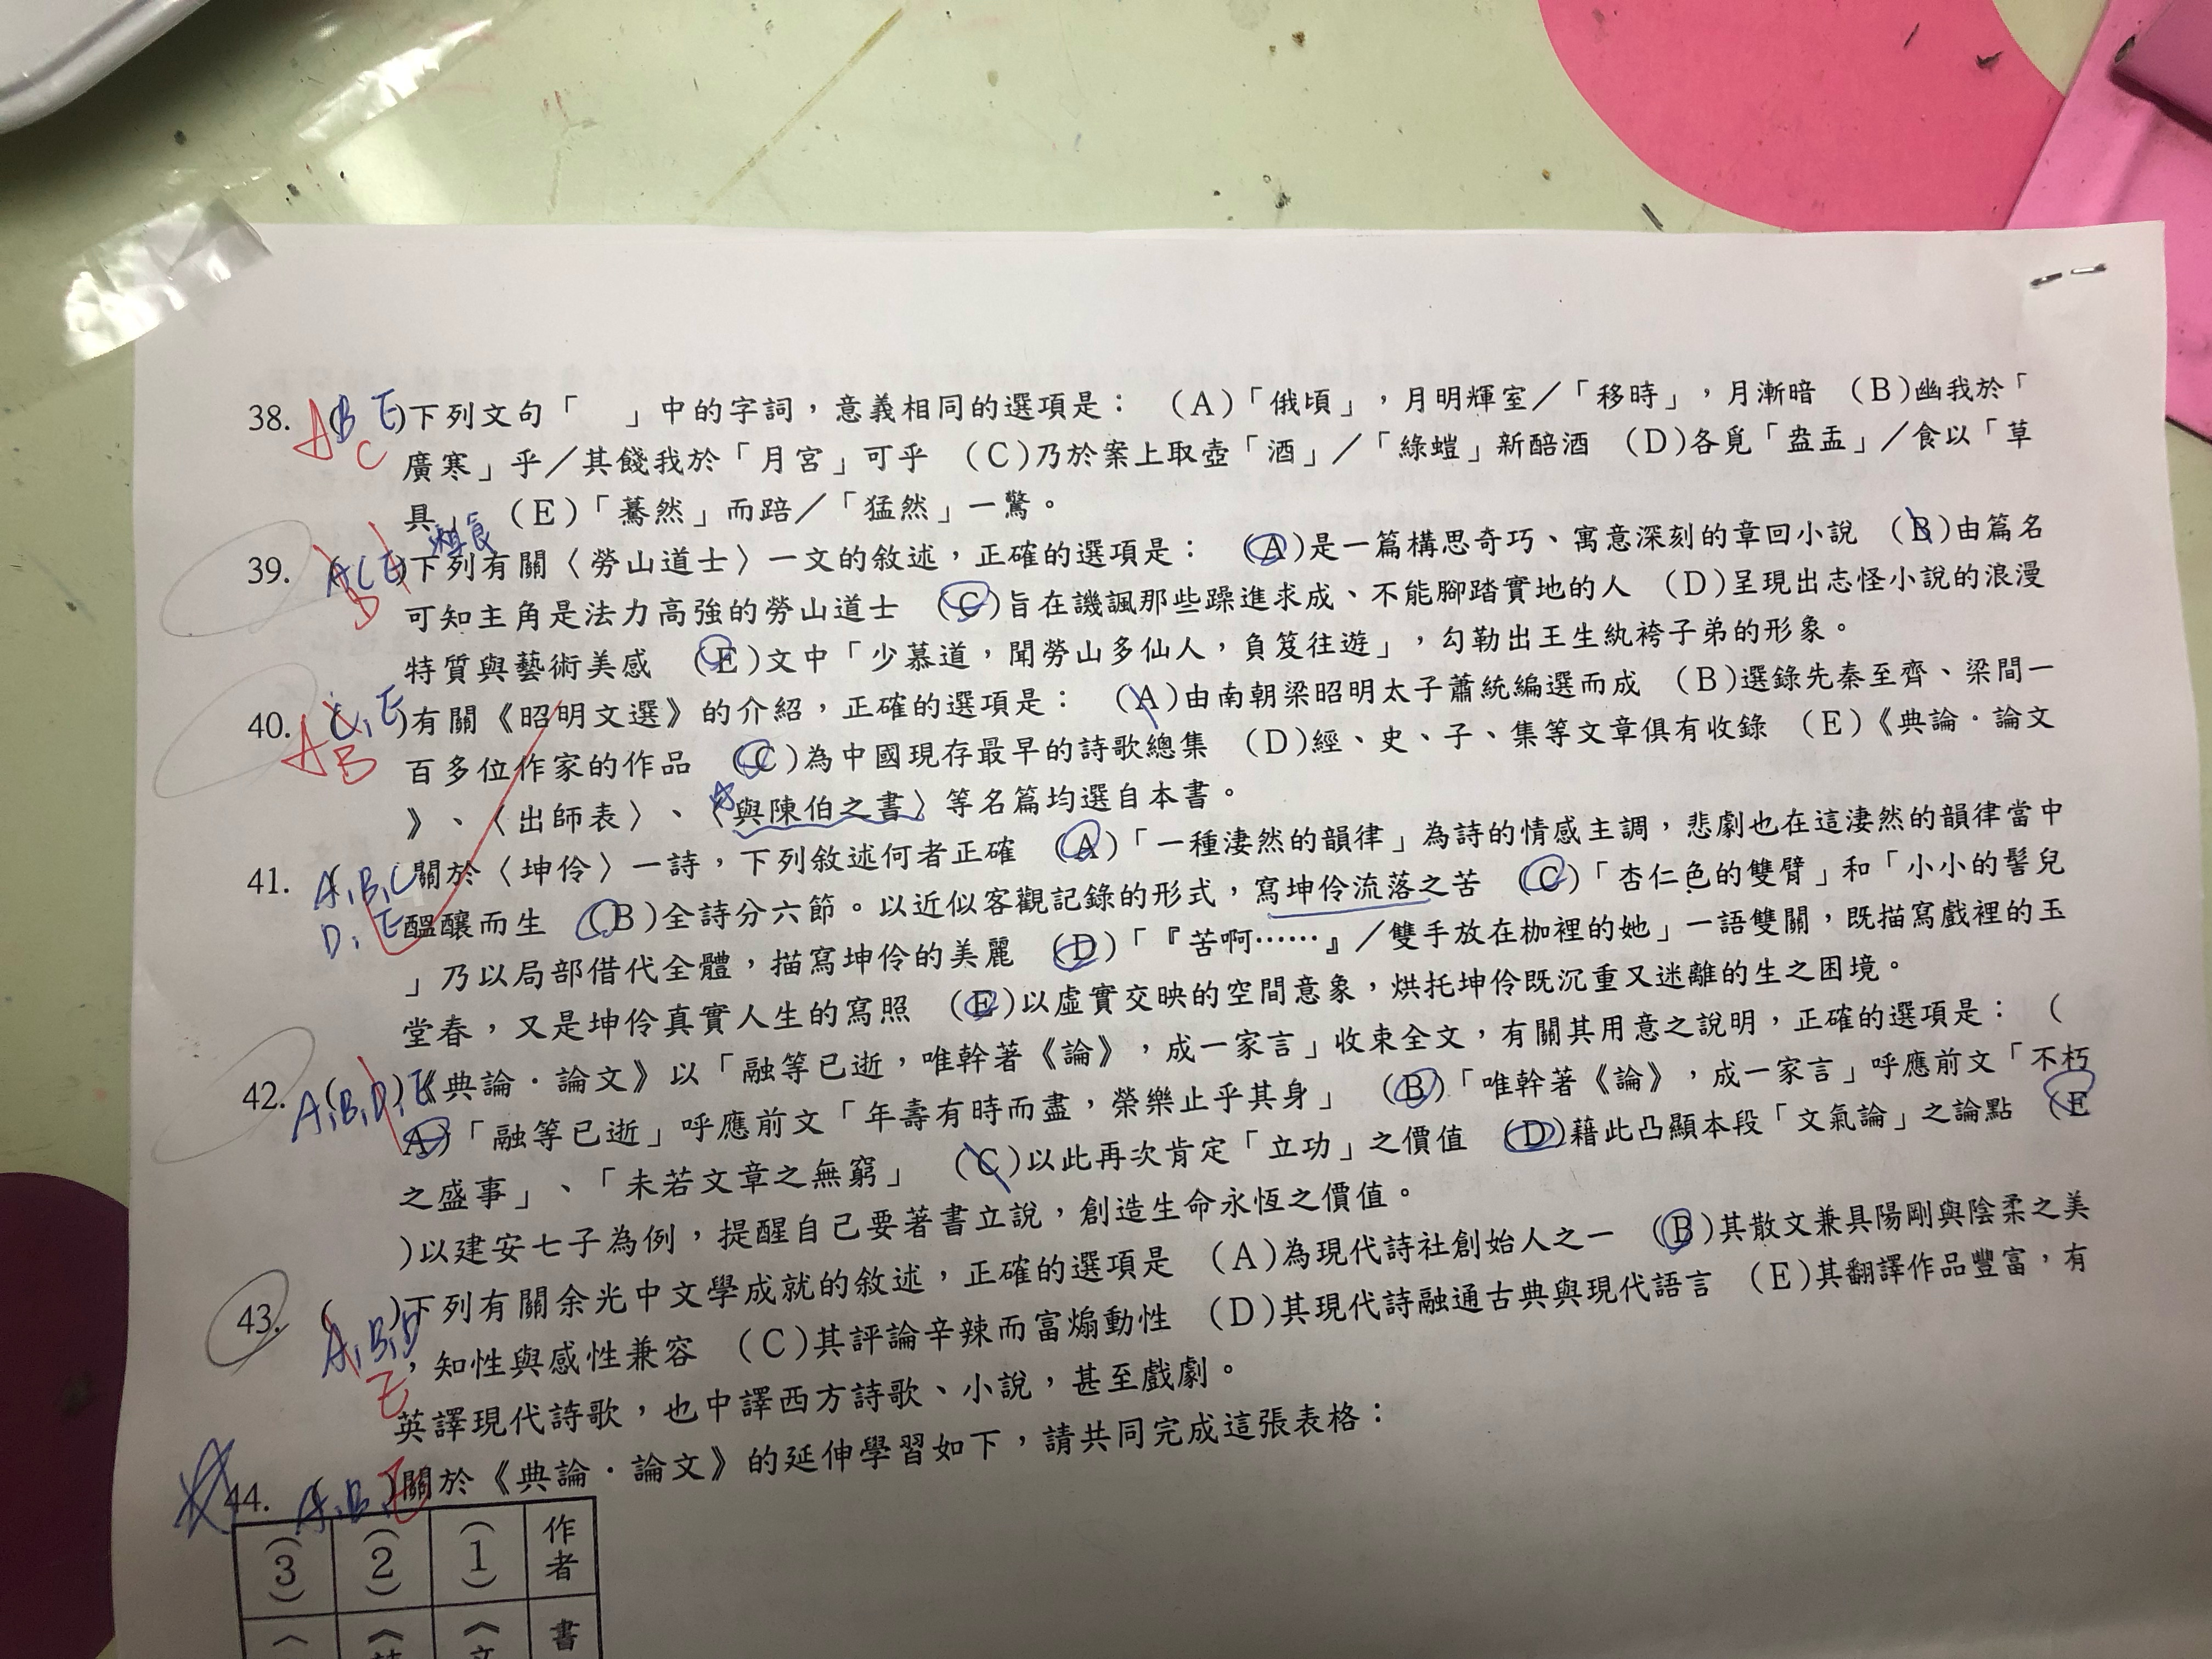 38. A(B E)下列文句「　」中的字詞，意義相同的選項是： (A)「俄頃」，月明輝室／「移時」，月漸暗 (B)幽我於「
C 廣寒」乎／其餞我於「月宮」可乎 (C)乃於案上取壺「酒」／「綠螘」新醅酒 (D)各覓「盎盂」／食以「草
具」 (E)「驀然」而踣／「猛然」一驚。
粗食
39. (A C E)下列有關〈勞山道士〉一文的敘述，正確的選項是： (A)是一篇構思奇巧、寓意深刻的章回小說 (B)由篇名
可知主角是法力高強的勞山道士 (C)旨在譏諷那些躁進求成、不能腳踏實地的人 (D)呈現出志怪小說的浪漫
特質與藝術美感 (E)文中「少慕道，聞勞山多仙人，負笈往遊」，勾勒出王生紈袴子弟的形象。
40. (C, E)有關《昭明文選》的介紹，正確的選項是： (A)由南朝梁昭明太子蕭統編選而成 (B)選錄先秦至齊、梁間一
A B 百多位作家的作品 (C)為中國現存最早的詩歌總集 (D)經、史、子、集等文章俱有收錄 (E)《典論．論文
》、〈出師表〉、〈與陳伯之書〉等名篇均選自本書。
41. A,B,C 關於〈坤伶〉一詩，下列敘述何者正確 (A)「一種淒然的韻律」為詩的情感主調，悲劇也在這淒然的韻律當中
D, E 醞釀而生 (B)全詩分六節。以近似客觀記錄的形式，寫坤伶流落之苦 (C)「杏仁色的雙臂」和「小小的髻兒
」乃以局部借代全體，描寫坤伶的美麗 (D)「『苦啊……』／雙手放在枷裡的她」一語雙關，既描寫戲裡的玉
堂春，又是坤伶真實人生的寫照 (E)以虛實交映的空間意象，烘托坤伶既沉重又迷離的生之困境。
42. A(,B,D,)E《典論．論文》以「融等已逝，唯幹著《論》，成一家言」收束全文，有關其用意之說明，正確的選項是： (
A)「融等已逝」呼應前文「年壽有時而盡，榮樂止乎其身」 (B)「唯幹著《論》，成一家言」呼應前文「不朽
之盛事」、「未若文章之無窮」 (C)以此再次肯定「立功」之價值 (D)藉此凸顯本段「文氣論」之論點 (E
)以建安七子為例，提醒自己要著書立說，創造生命永恆之價值。
43. (　)下列有關余光中文學成就的敘述，正確的選項是 (A)為現代詩社創始人之一 (B)其散文兼具陽剛與陰柔之美
A,B,D
，知性與感性兼容 (C)其評論辛辣而富煽動性 (D)其現代詩融通古典與現代語言 (E)其翻譯作品豐富，有
E
英譯現代詩歌，也中譯西方詩歌、小說，甚至戲劇。
44. A,B, E 關於《典論．論文》的延伸學習如下，請共同完成這張表格：
(3) (2) (1) 作者
〈 《 《文 書